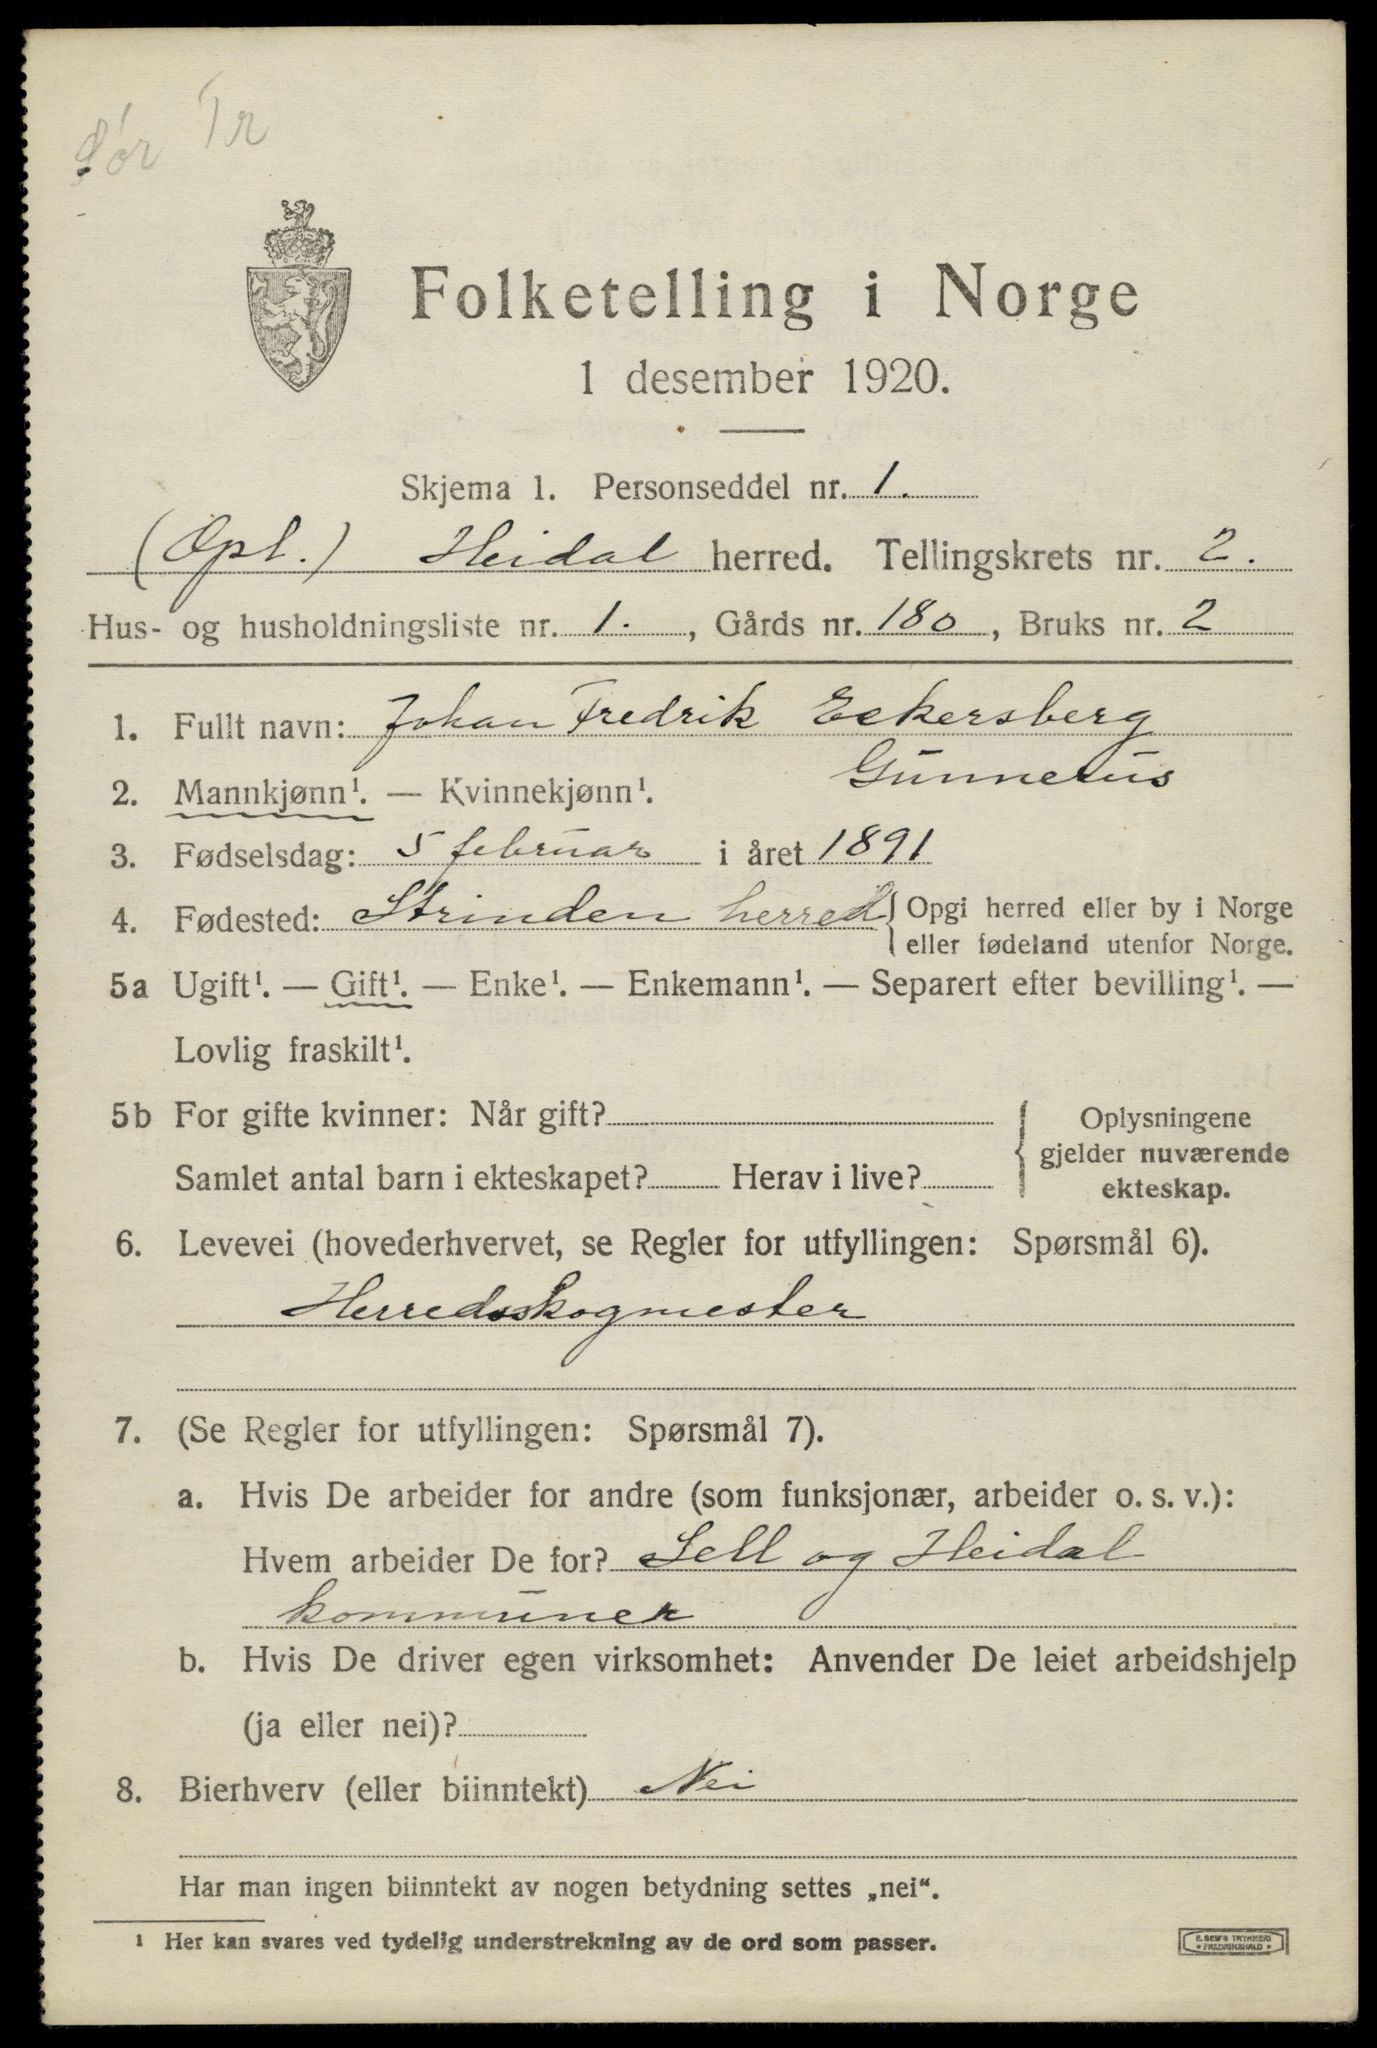 Sør Tr
Folketelling i Norge
1 desember 1920.
Skjema 1. Personseddel nr. 1.
(Opl.) Heidal herred. Tellingskrets nr. 2.
Hus- og husholdningsliste nr. 1. , Gårds nr. 180 , Bruks nr. 2
1. Fullt navn: Johan Fredrik Eckersberg
Gunnerus
2. Mannkjønn¹. — Kvinnekjønn¹.
3. Fødselsdag: 5 februar i året 1891
4. Fødested: Strinden herred { Opgi herred eller by i Norge
eller fødeland utenfor Norge.
5a Ugift¹. — Gift¹. — Enke¹. — Enkemann¹. — Separert efter bevilling¹. —
Lovlig fraskilt¹.
5b For gifte kvinner: Når gift?
Samlet antal barn i ekteskapet? Herav i live?
Oplysningene
gjelder nuværende
ekteskap.
6. Levevei (hovederhvervet, se Regler for utfyllingen: Spørsmål 6).
Herredsskogmester
7. (Se Regler for utfyllingen: Spørsmål 7).
a. Hvis De arbeider for andre (som funksjonær, arbeider o. s. v.):
Hvem arbeider De for? Sell og Heidal
kommuner
b. Hvis De driver egen virksomhet: Anvender De leiet arbeidshjelp
(ja eller nei)?
8. Bierhverv (eller biinntekt) Nei
Har man ingen biinntekt av nogen betydning settes „nei“.
¹ Her kan svares ved tydelig understrekning av de ord som passer.
E. SEM'S TRYKKERI
* FREDRIKSHALD *